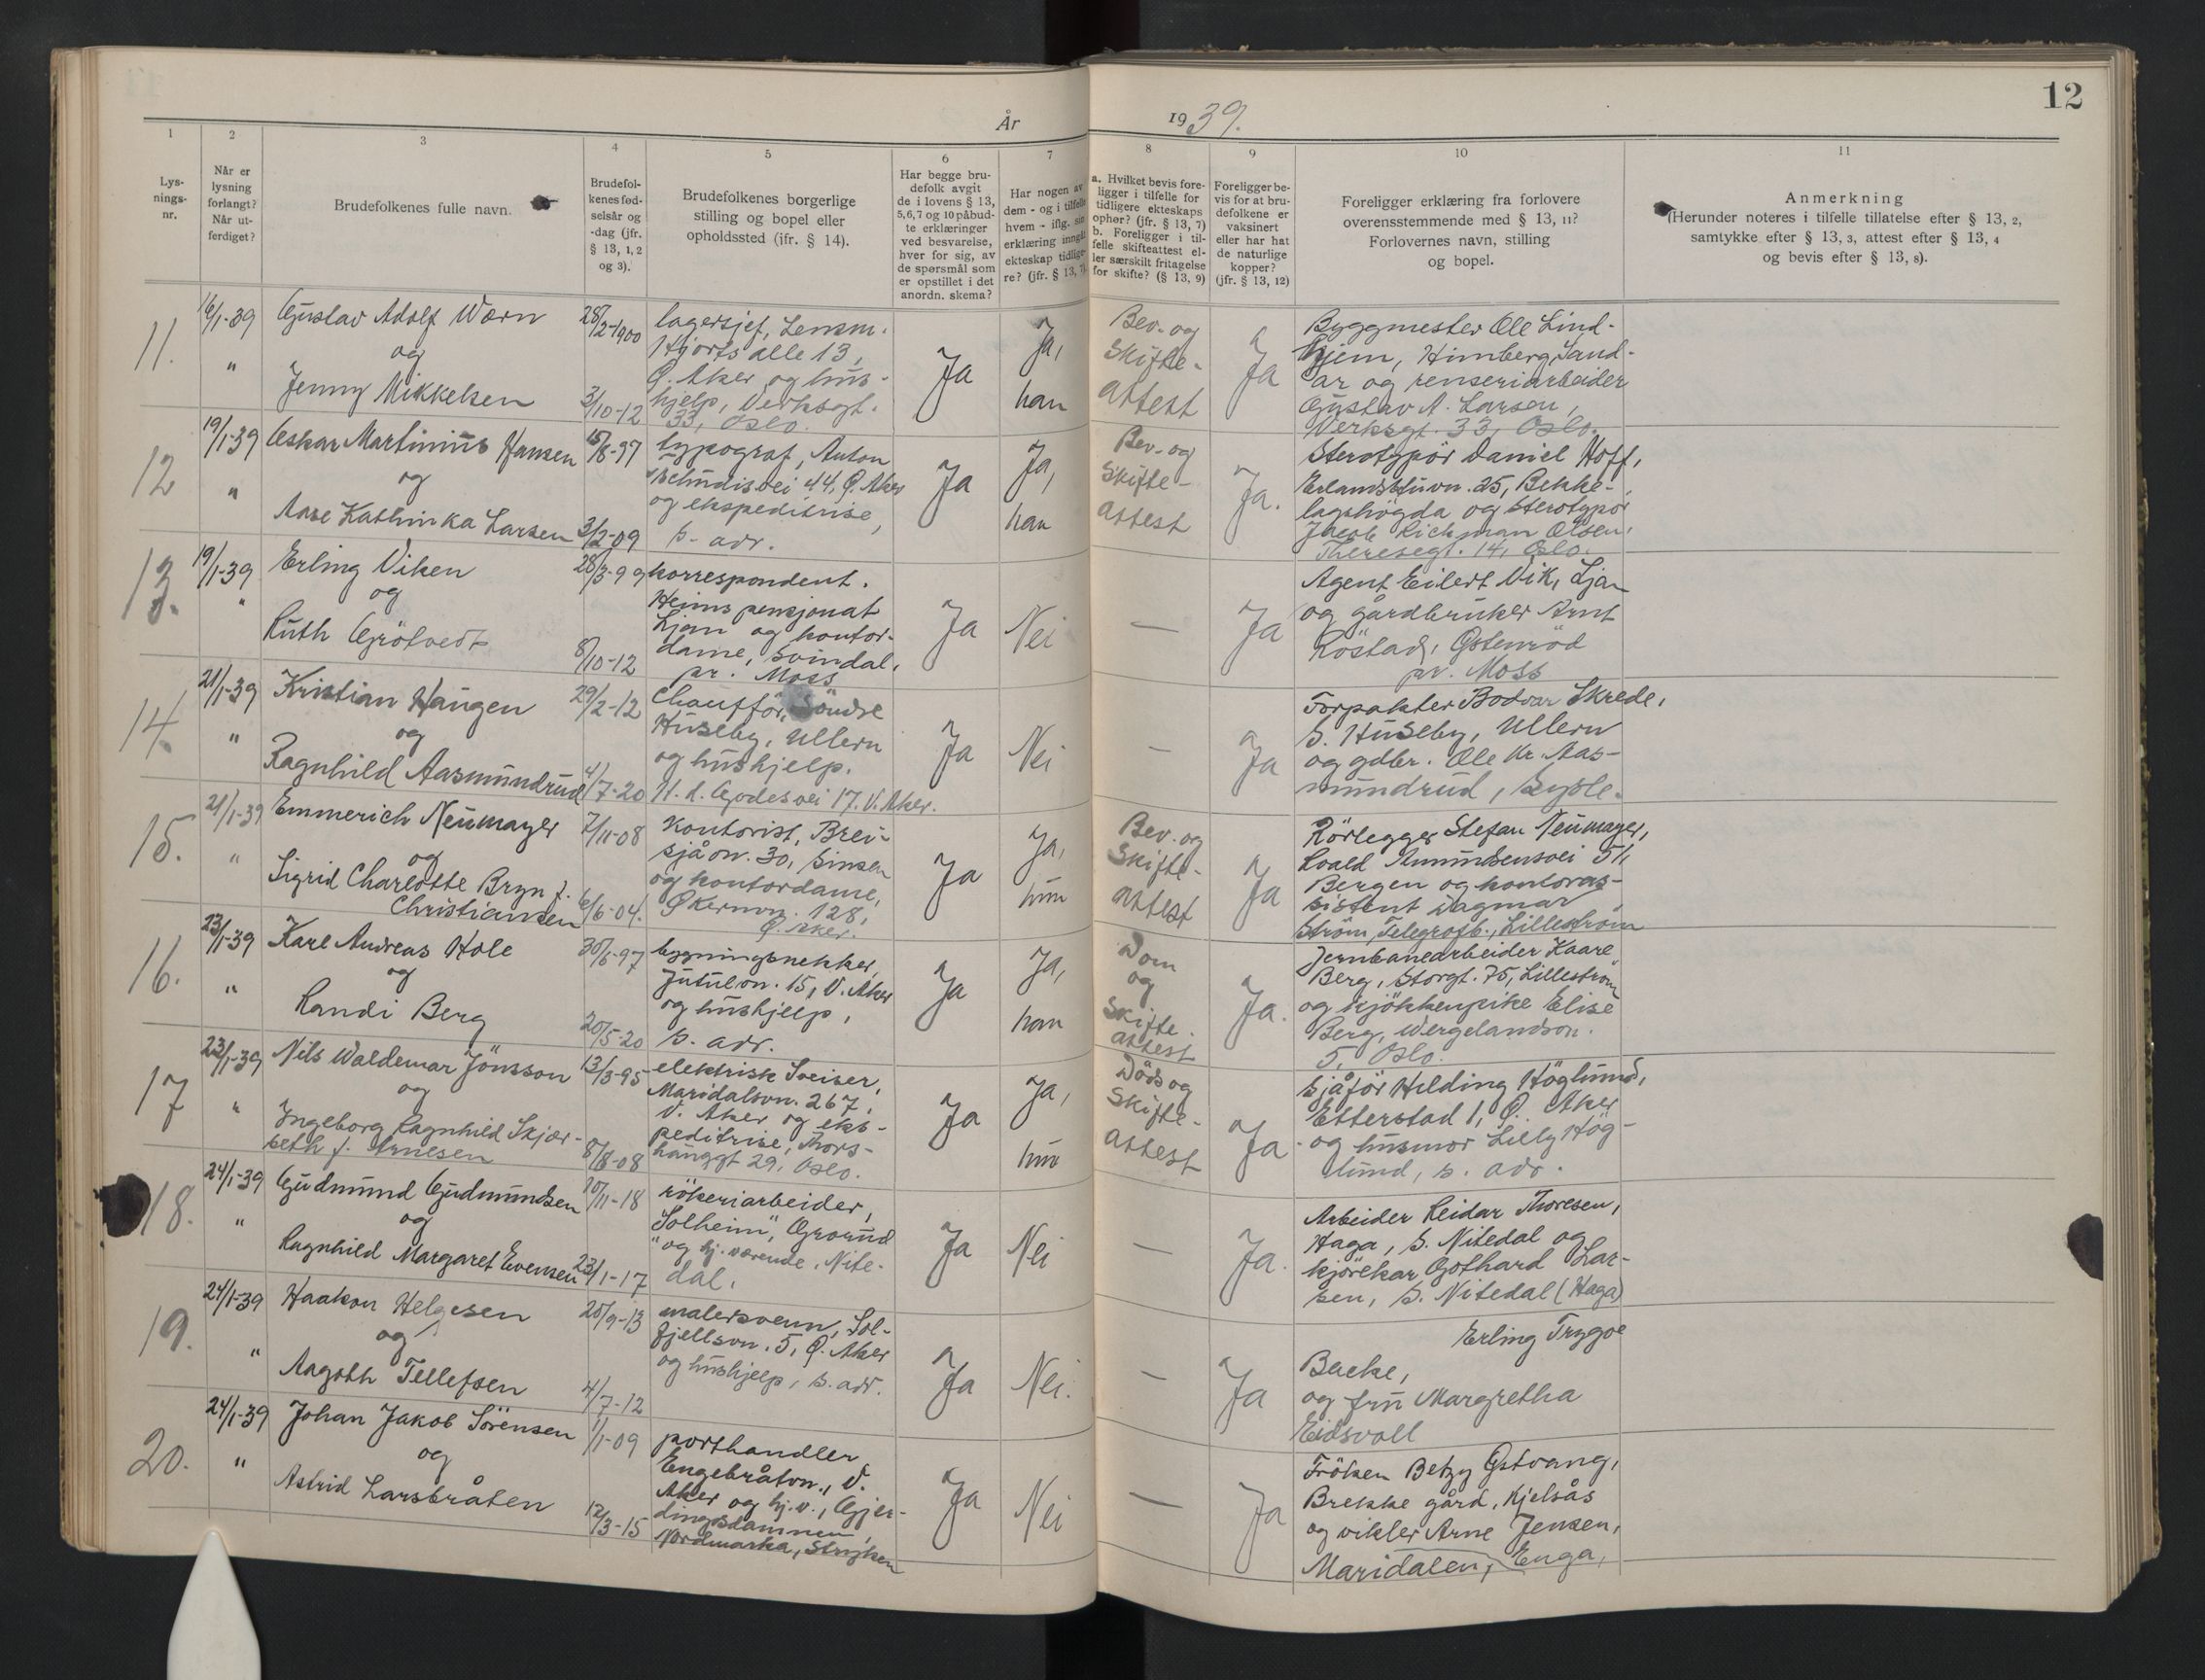 12
År 1939.
1
2
3
4
5
6
7
8
9
10
11
Lys-
nings-
nr.
Når er
lysning
forlangt?
Når ut-
ferdiget?
Brudefolkenes fulle navn.
Brudefol-
kenes fød-
selsår og
-dag (jfr.
§ 13, 1, 2
og 3).
Brudefolkenes borgerlige
stilling og bopel eller
opholdssted (jfr. § 14).
Har begge bru-
defolk avgit
de i lovens § 13,
5,6,7 og 10 påbud-
te erklæringer
ved besvarelse,
hver for sig, av
de spørsmål som
er opstillet i det
anordn. skema?
Har nogen av
dem - og i tilfelle
hvem - iflg. sin
erklæring inngått
ekteskap tidlige-
re? (jfr. § 13, 7)
a. Hvilket bevis fore-
ligger i tilfelle for
tidligere ekteskaps
ophør? (jfr. § 13, 7)
b. Foreligger i til-
felle skifteattest el-
ler særskilt fritagelse
for skifte? (§ 13, 9)
Foreligger be-
vis for at bru-
defolkene er
vaksinert
eller har hat
de naturlige
kopper?
(jfr. § 13, 12)
Foreligger erklæring fra forlovere
overensstemmende med § 13, 11?
Forlovernes navn, stilling
og bopel.
Anmerkning
(Herunder noteres i tilfelle tillatelse efter § 13, 2,
samtykke efter § 13, 3, attest efter § 13, 4
og bevis efter § 13, 8).
11.
16/1-39
"
Gustav Adolf Wærn
og
Jenny Mikkelsen
28/2-1900
3/10-12
lagersjef, Lensm.
Hjorts alle 13,
Ø. Aker og hus-
hjelp, Verksgt.
33, Oslo.
Ja
Ja,
han
Bev. og
Skifte-
attest
Ja
Byggmester Ole Lind-
hjem, Himberg, Sand-
ar og renseriarbeider
Gustav A. Larsen,
Verksgt. 33, Oslo.
12
19/1-39
"
Oskar Martinius Hansen
og
Aase Kathinka Larsen
15/8-97
3/2-09
typograf, Anton
Schudis vei 44, Ø. Aker
og ekspeditrise,
s. adr.
Ja
Ja,
han
Bev. og
Skifte-
attest
Ja.
Sterotypør Daniel Hoff,
Erlandstuvn. 25, Bekke-
lagshøgda og sterotypør
Jacob Richman Olsen,
Theresegt. 14, Oslo.
13.
19/1-39
"
Erling Viken
og
Ruth Grötvedt
28/3-99
8/10-12
korrespondent.
Heims pensjonat
Ljan og kontor-
dame, Svindal,
pr. Moss
Ja
Nei
—
Ja
Agent Eilert Vik, Ljan
og gårdbruker Arnt
Röstad, Østenröd
pr. Moss
14.
21/1-39
"
Kristian Haugen
og
Ragnhild Aasmundrud
29/2-12
4/7-20
Chaufför, Söndre
Huseby, Ullern
og hushjelp.
H. L. Godes vei 17. V. Aker.
Ja
Nei
—
Ja
Forpakter Bodvar Skrede,
S. Huseby, Ullern
og gdbr. Ole Kr. Aas-
mundrud, Sysle.
15.
21/1-39
"
Emmerich Neumayer
og
Sigrid Charlotte Bryn f.
Christiansen
7/11-08
6/6-04.
kontorist, Brei-
sjåvn. 30, Sinsen
og kontordame,
Økernvn. 128,
Ø. Aker.
Ja
Ja,
hun
Bev. og
Skifte-
attest
Ja
Rörlegger Stefan Neumayer,
Roald Amundsensvei 51,
Bergen og kontoras-
sistent Dagmar
Ström, Telegrafb., Lilleström
16.
23/1-39
"
Karl Andreas Hole
og
Randi Berg
30/6-97
20/5-20
bygningssnekker,
Jutulvn. 15, V. Aker
og hushjelp,
s. adr.
Ja
Ja,
han
Dom
og
Skifte-
attest
Ja.
Jernbanearbeider Kaare
Berg, Storgt. 75, Lilleström
og kjökkenpike Elise
Berg, Wergelandsvn.
5, Oslo.
17
23/1-39
"
Nils Waldemar Jönsson
og
Ingeborg Ragnhild Skjær-
seth f. Arnesen
13/3-95
8/8-08
elektrisk Sveiser,
Maridalsvn. 267,
V. Aker og eks-
peditrise, Thors-
hauggt 29, Oslo.
Ja
Ja,
hun
Döds og
Skifte-
attest
Ja
Sjåför Hilding Höglund,
Etterstad 1, Ø. Aker
og husmor Lilly Hög-
lund, s. adr.
18.
24/1-39
"
Gudmund Gudmundsen
og
Ragnhild Margaret Evensen
10/11-18
23/1-17
rökeriarbeider,
"Solheim", Grorud
og hj. værende, Nite-
dal.
Ja
Nei
—
Ja.
Arbeider Reidar Thoresen,
Haga, S. Nitedal og
kjörekar Gothard Lar-
sen, S. Nitedal (Haga)
19.
24/1-39
"
Haakon Helgesen
og
Aagoth Tellefsen
20/9-13
4/7-12
malersvenn, Sol-
fjellsvn. 5, Ø. Aker
og hushjelp, s. adr.
Ja
Nei.
—
Ja
Erling Trygve
Backe,
og fru Margretha
Eidsvoll
20.
24/1-39
"
Johan Jakob Sörensen
og
Astrid Larsbråten
1/1-09
12/3-15
porthandler
Engebråtvn., V.
Aker og hj. v., Gjer-
dingsdammen,
Nordmarka, Stryken
Ja
Nei
—
Ja
Fröken Betzy Østvang,
Brekke gård, Kjelsås
og vikler Arne Jensen,
Maridalen, Enga,